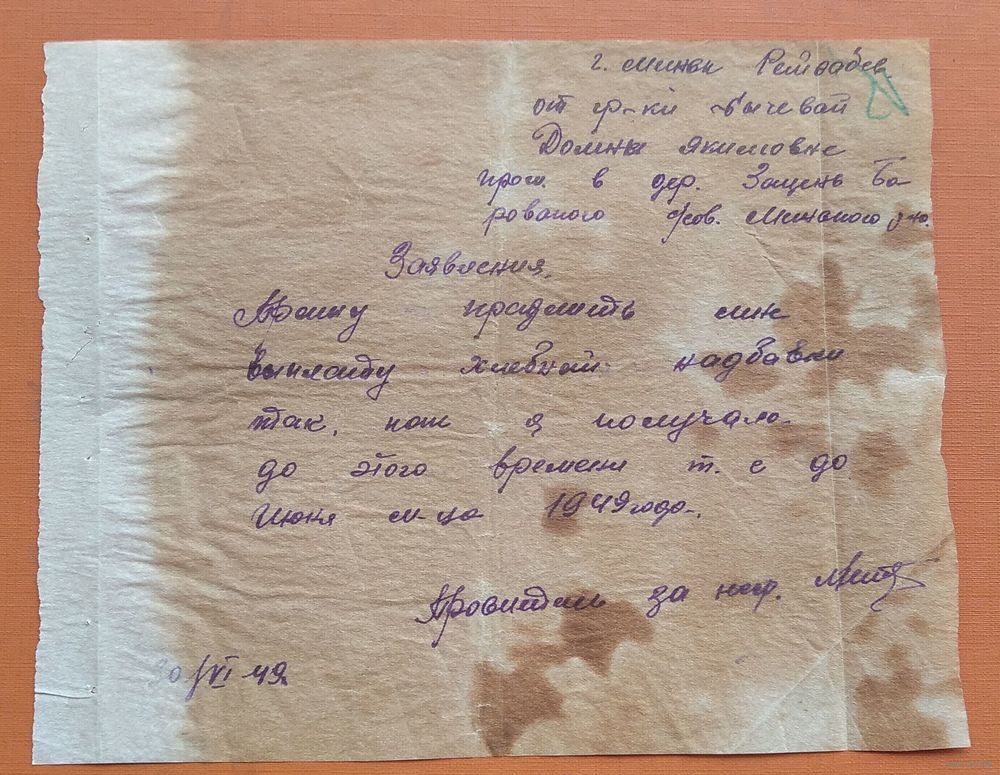 г. Минск
от гр-ки Бычевай
Домны Якимовне
прож. в дер. Защень Ба
раваного Минского
Заявления.
Прошу прадлить мне
выплату хлебнай надбавки
так, как я получала
до этого времени т. е до
Июня м-ца 1949 года.
за нег.
30/VI 49